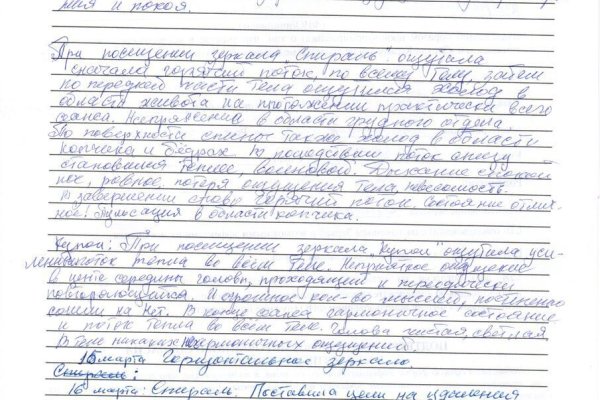 ния и покоя.
При посещении зеркала "Спираль" ощутила
сначала горячий поток, по всему телу, затем
по передней части тела ощущался холод в
области живота на протяжении практически всего
сеанса. Напряжение в области грудного отдела.
По поверхности спины также холод в области
копчика и бедрах. В последствии поток снизу
становился теплее, волновой. Дыхание спокой
ное, ровное, потеря ощущения тела, невесомость.
В завершении снова горячий поток. Состояние отлич-
ное. Пульсация в области копчика.
Купол: При посещении зеркала "Купол" ощутила уси-
ление поток тепла во всём теле. Неприятное ощущение
в центе середины головы, проходящий и периодически
повторяющийся. И огромное кол-во мыслей, постепенно
сошли на нет. В конце сеанса гармоничное состояние
и поток тепла во всём теле. Голова чистая, светлая,
в теле никаких негармоничных ощущений.
15 марта Горизонтальное зеркало.
Спираль:
16 марта: Спираль. Поставила цели на удаления